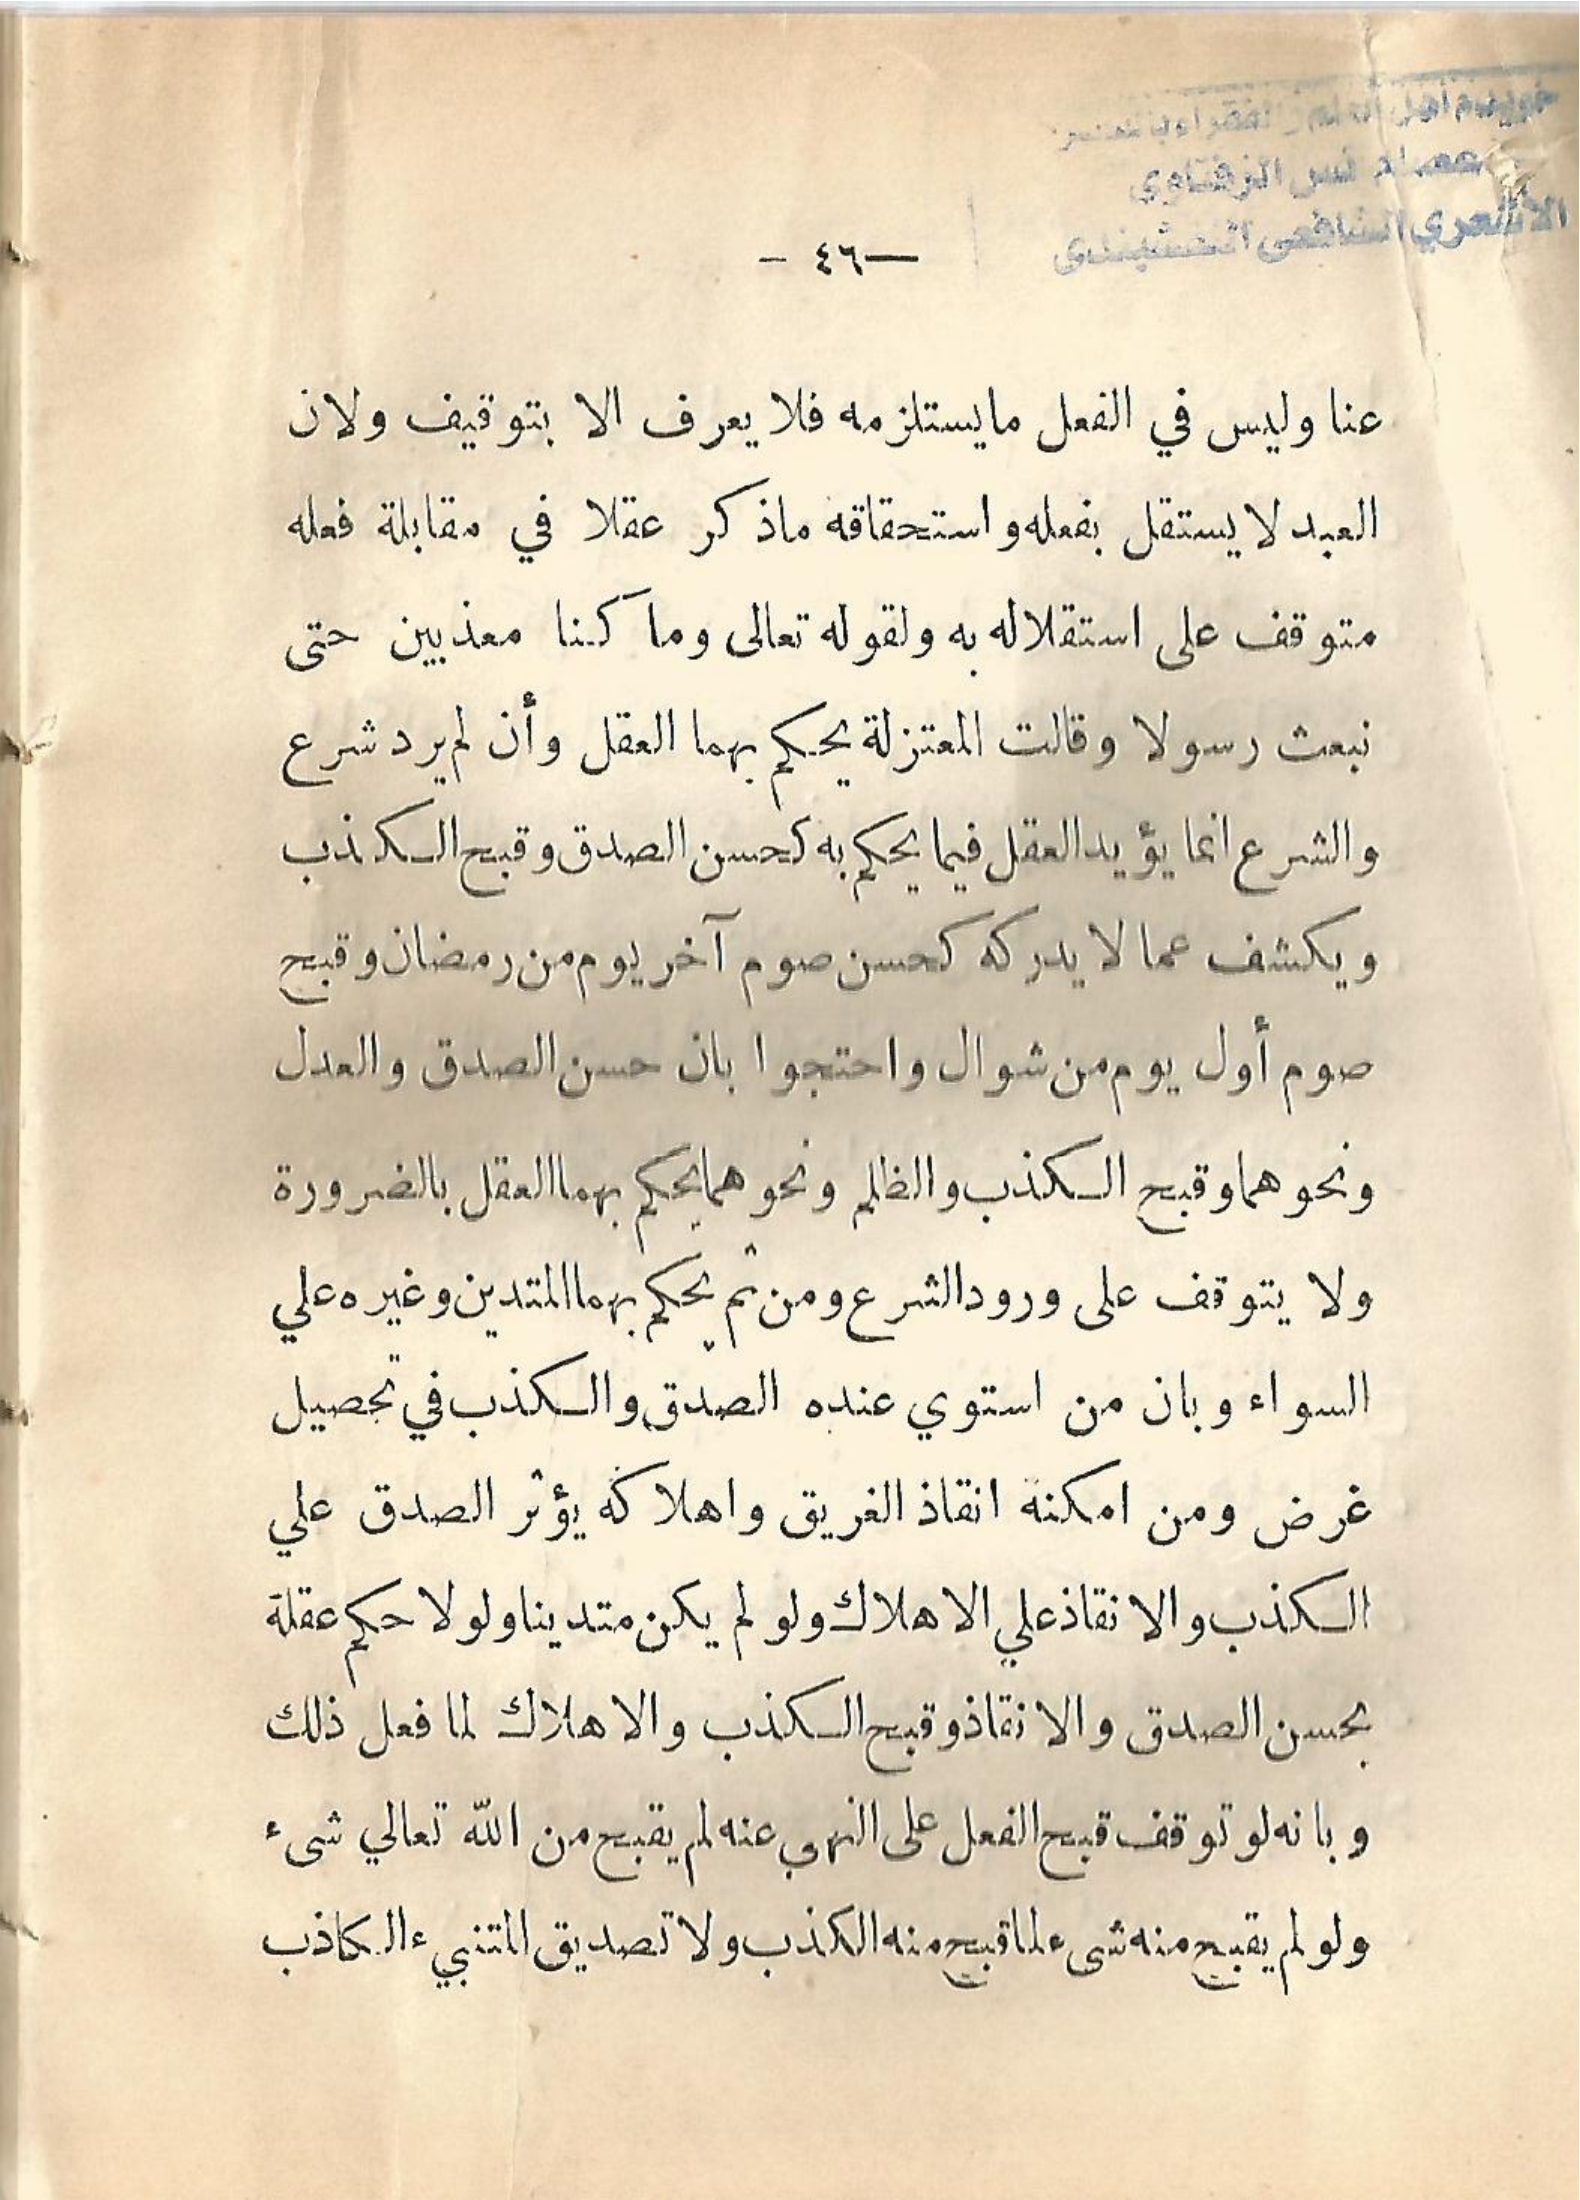 الأشعري الشافعي النقشبندي
— ٤٦ —
عنا وليس في الفعل مايستلزمه فلا يعرف الا بتوقيف ولان
العبد لا يستقل بفعله واستحقاقه ماذكر عقلا في مقابلة فعله
متوقف على استقلاله به ولقوله تعالى وما كنا معذبين حتى
نبعث رسولا وقالت المعتزلة يحكم بهما العقل وأن لم يرد شرع
والشرع انما يؤيد العقل فيما يحكم به كحسن الصدق وقبح الكذب
ويكشف عما لا يدركه كحسن صوم آخر يوم من رمضان وقبح
صوم أول يوم من شوال واحتجوا بان حسن الصدق والعدل
ونحوهما وقبح الكذب والظلم ونحوهما يحكم بهما العقل بالضرورة
ولا يتوقف على ورود الشرع ومن ثم يحكم بهما المتدين وغيره علي
السواء وبان من استوي عنده الصدق والكذب في تحصيل
غرض ومن امكنة انقاذ الغريق واهلاكه يؤثر الصدق علي
الكذب والانقاذ علي الاهلاك ولو لم يكن متدينا ولولا حكم عقلة
بحسن الصدق والانقاذ وقبح الكذب والاهلاك لما فعل ذلك
وبانه لو توقف قبح الفعل على النهي عنه لم يقبح من الله تعالي شىء
ولو لم يقبح منه شىء لما قبح منه الكذب ولا تصديق المتنبيء الكاذب